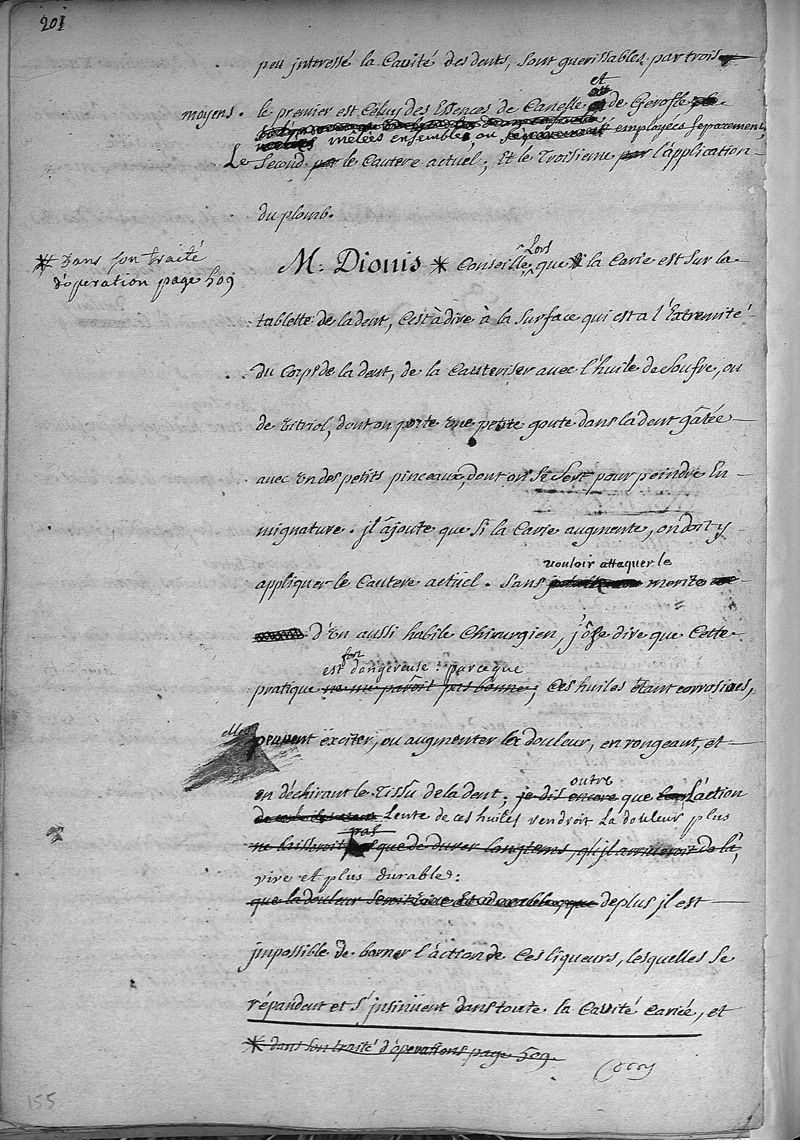 201
peu interessé la Cavité des dents, sont guerissables par trois
et
moyens. le premier est Celuy des Essences de Canelle de Gerofle
melées ensembles, ou employées separement,
Le Second, par le Cautere actuel; Et le Troisieme par l'application
du plomb.
* Dans son traité
d'operation page 509
Lors
M. Dionis * Conseille que la Carie est sur la
tablette de la dent, C'est à dire à la surface qui est a l'Extremité
du Corps de la dent, de la Cauteriser avec l'huile de Soufre, ou
de vitriol, dont on porte une petite goute dans la dent gâtée
avec un des petits pinceaux, dont on se sert pour peindre En
mignature. jl ajoute que si la Carie augmente, on doit y
vouloir attaquer le
appliquer le Cautere actuel. Sans merite
d'Un aussi habile Chirurgien, j'ose dire que Cette
est fort dangereuse: parceque
pratique ne me paroît pas bonne; Ces huiles étant corrosives,
elles
peuvent exciter, ou augmenter la douleur, en rongeant, et
outre
en déchirant le tissu de la dent; je dis encore que L'action
Lente de ces huiles rendroit La douleur plus
pas
ne laisseroit que de durer longtems, de là,
vive et plus durable:
que la douleur de plus jl est
jmpossible de borner l'action de Ces liqueurs, lesquelles se
répandent et s'jnsinüent dans toute la Cavité cariée, et
* dans son traité d'operations page 509.
155